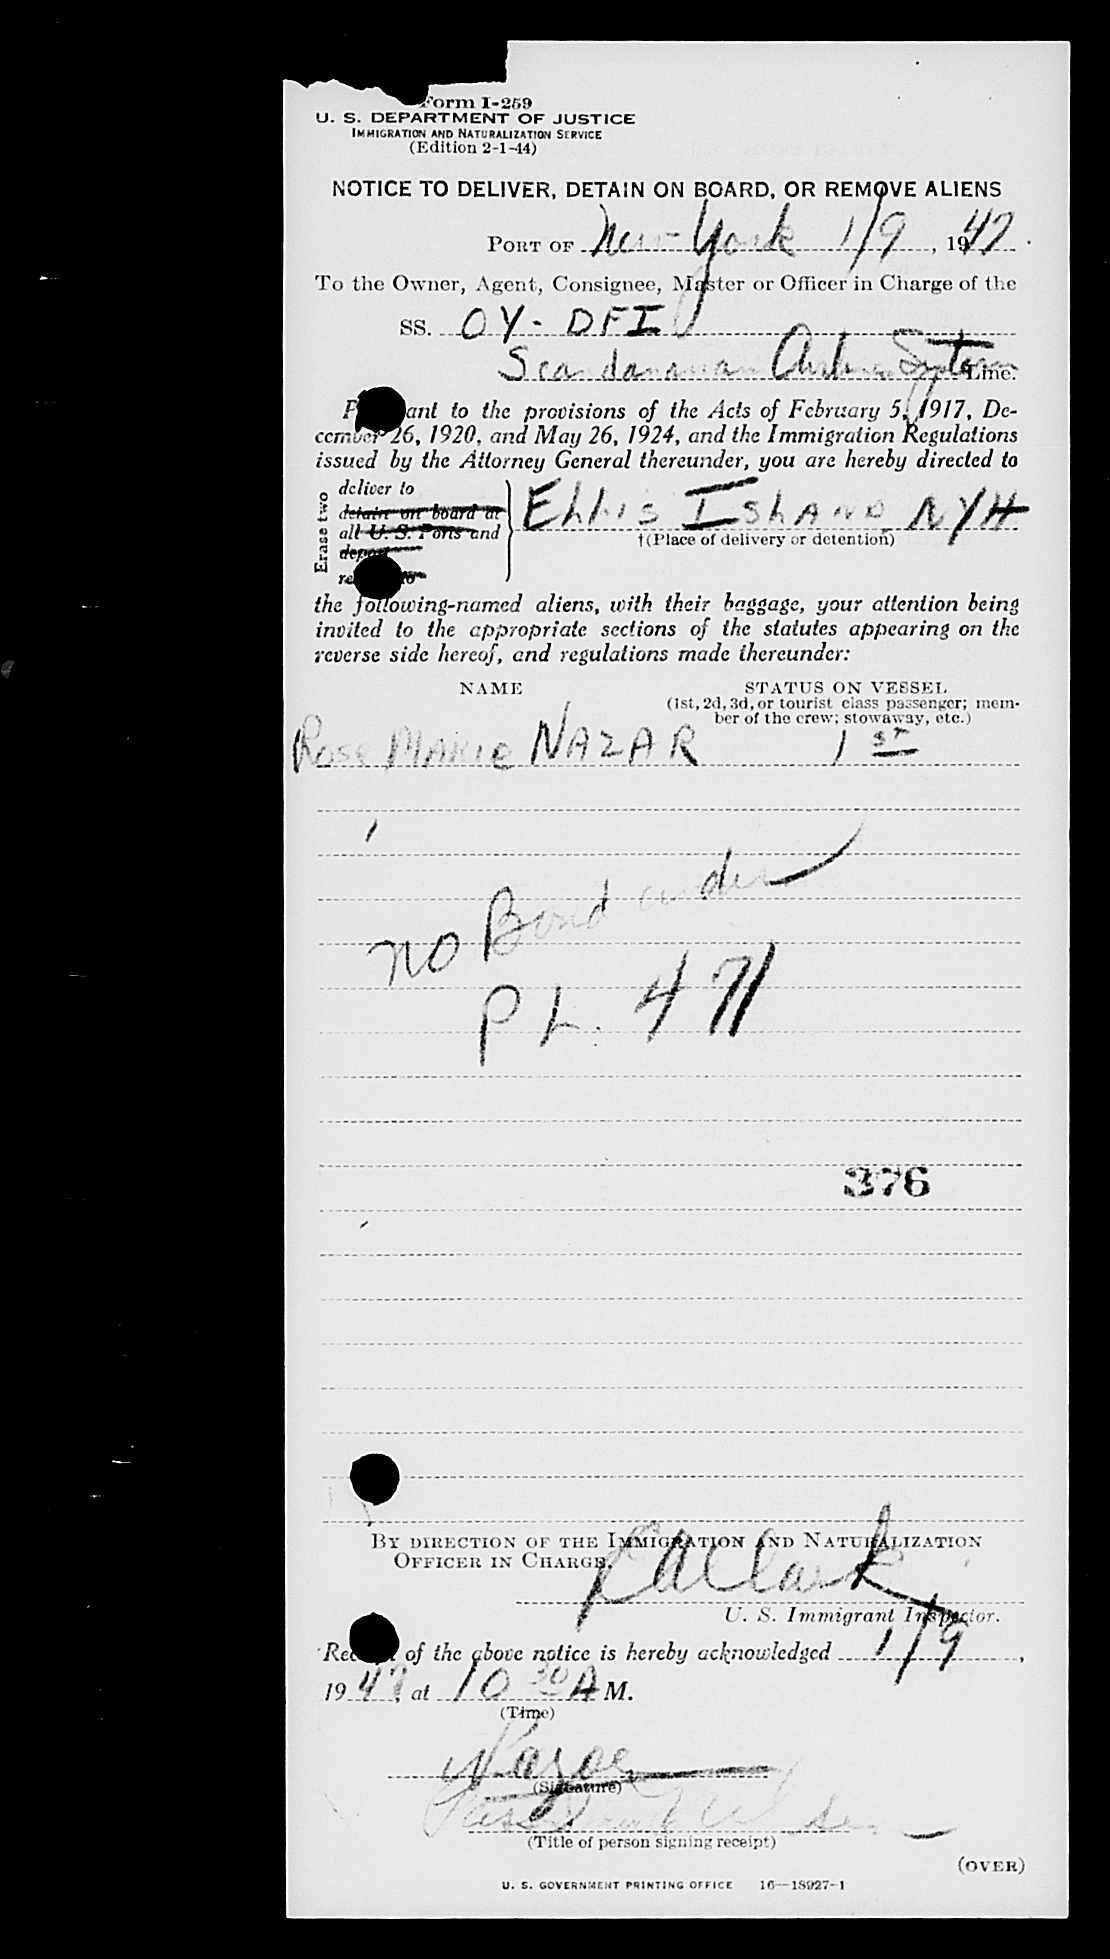 Form I-259
U. S. DEPARTMENT OF JUSTICE
IMMIGRATION AND NATURALIZATION SERVICE
(Edition 2-1-44)
NOTICE TO DELIVER, DETAIN ON BOARD, OR REMOVE ALIENS
PORT OF New York 1/9, 1947
To the Owner, Agent, Consignee, Master or Officer in Charge of the
SS. OY-DFI
Scandanavian Airlines System Line.
P ant to the provisions of the Acts of February 5, 1917, De-
cember 26, 1920, and May 26, 1924, and the Immigration Regulations
issued by the Attorney General thereunder, you are hereby directed to
Erase two
deliver to
detain on board at
all U. S. Ports and
deport
re to
ELLIS ISLAND NYH
†(Place of delivery or detention)
the following-named aliens, with their baggage, your attention being
invited to the appropriate sections of the statutes appearing on the
reverse side hereof, and regulations made thereunder:
NAME STATUS ON VESSEL
(1st, 2d, 3d, or tourist class passenger; mem-
ber of the crew; stowaway, etc.)
Rose Marie NAZAR 1st
no Bond under
PL. 471
376
BY DIRECTION OF THE IMMIGRATION AND NATURALIZATION
OFFICER IN CHARGE.
Clark
U. S. Immigrant Inspector.
Rec of the above notice is hereby acknowledged 1/9,
1947, at 10 30 A M.
(Time)
(Signature)
(Title of person signing receipt)
(OVER)
U. S. GOVERNMENT PRINTING OFFICE 16—18927-1